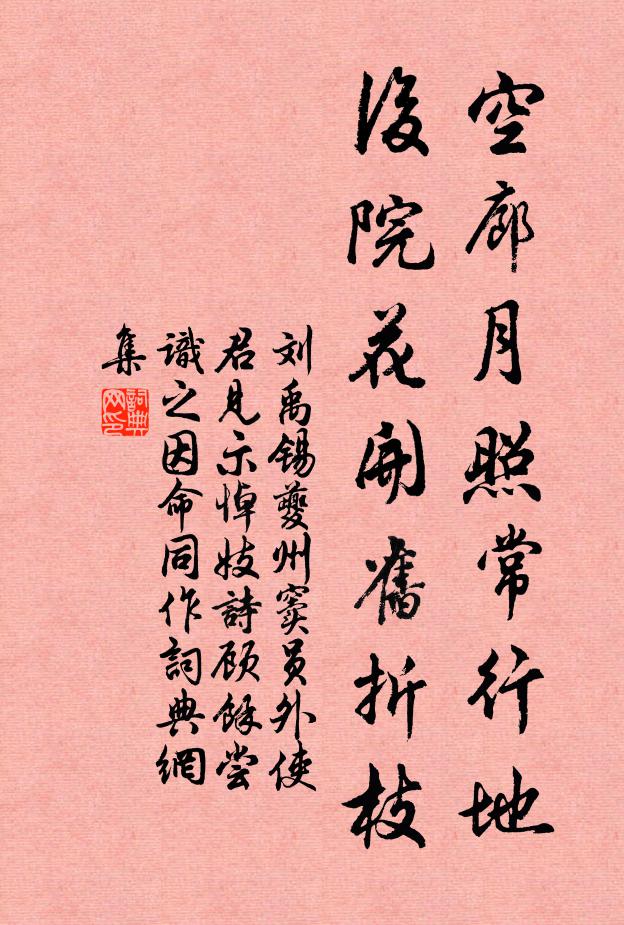 空廊月照常行地
後院花開舊折枝
刘禹锡夔州窦员外使
君見示悼妓詩顾餘尝
識之因命同作詞典網
集
詞典
网印